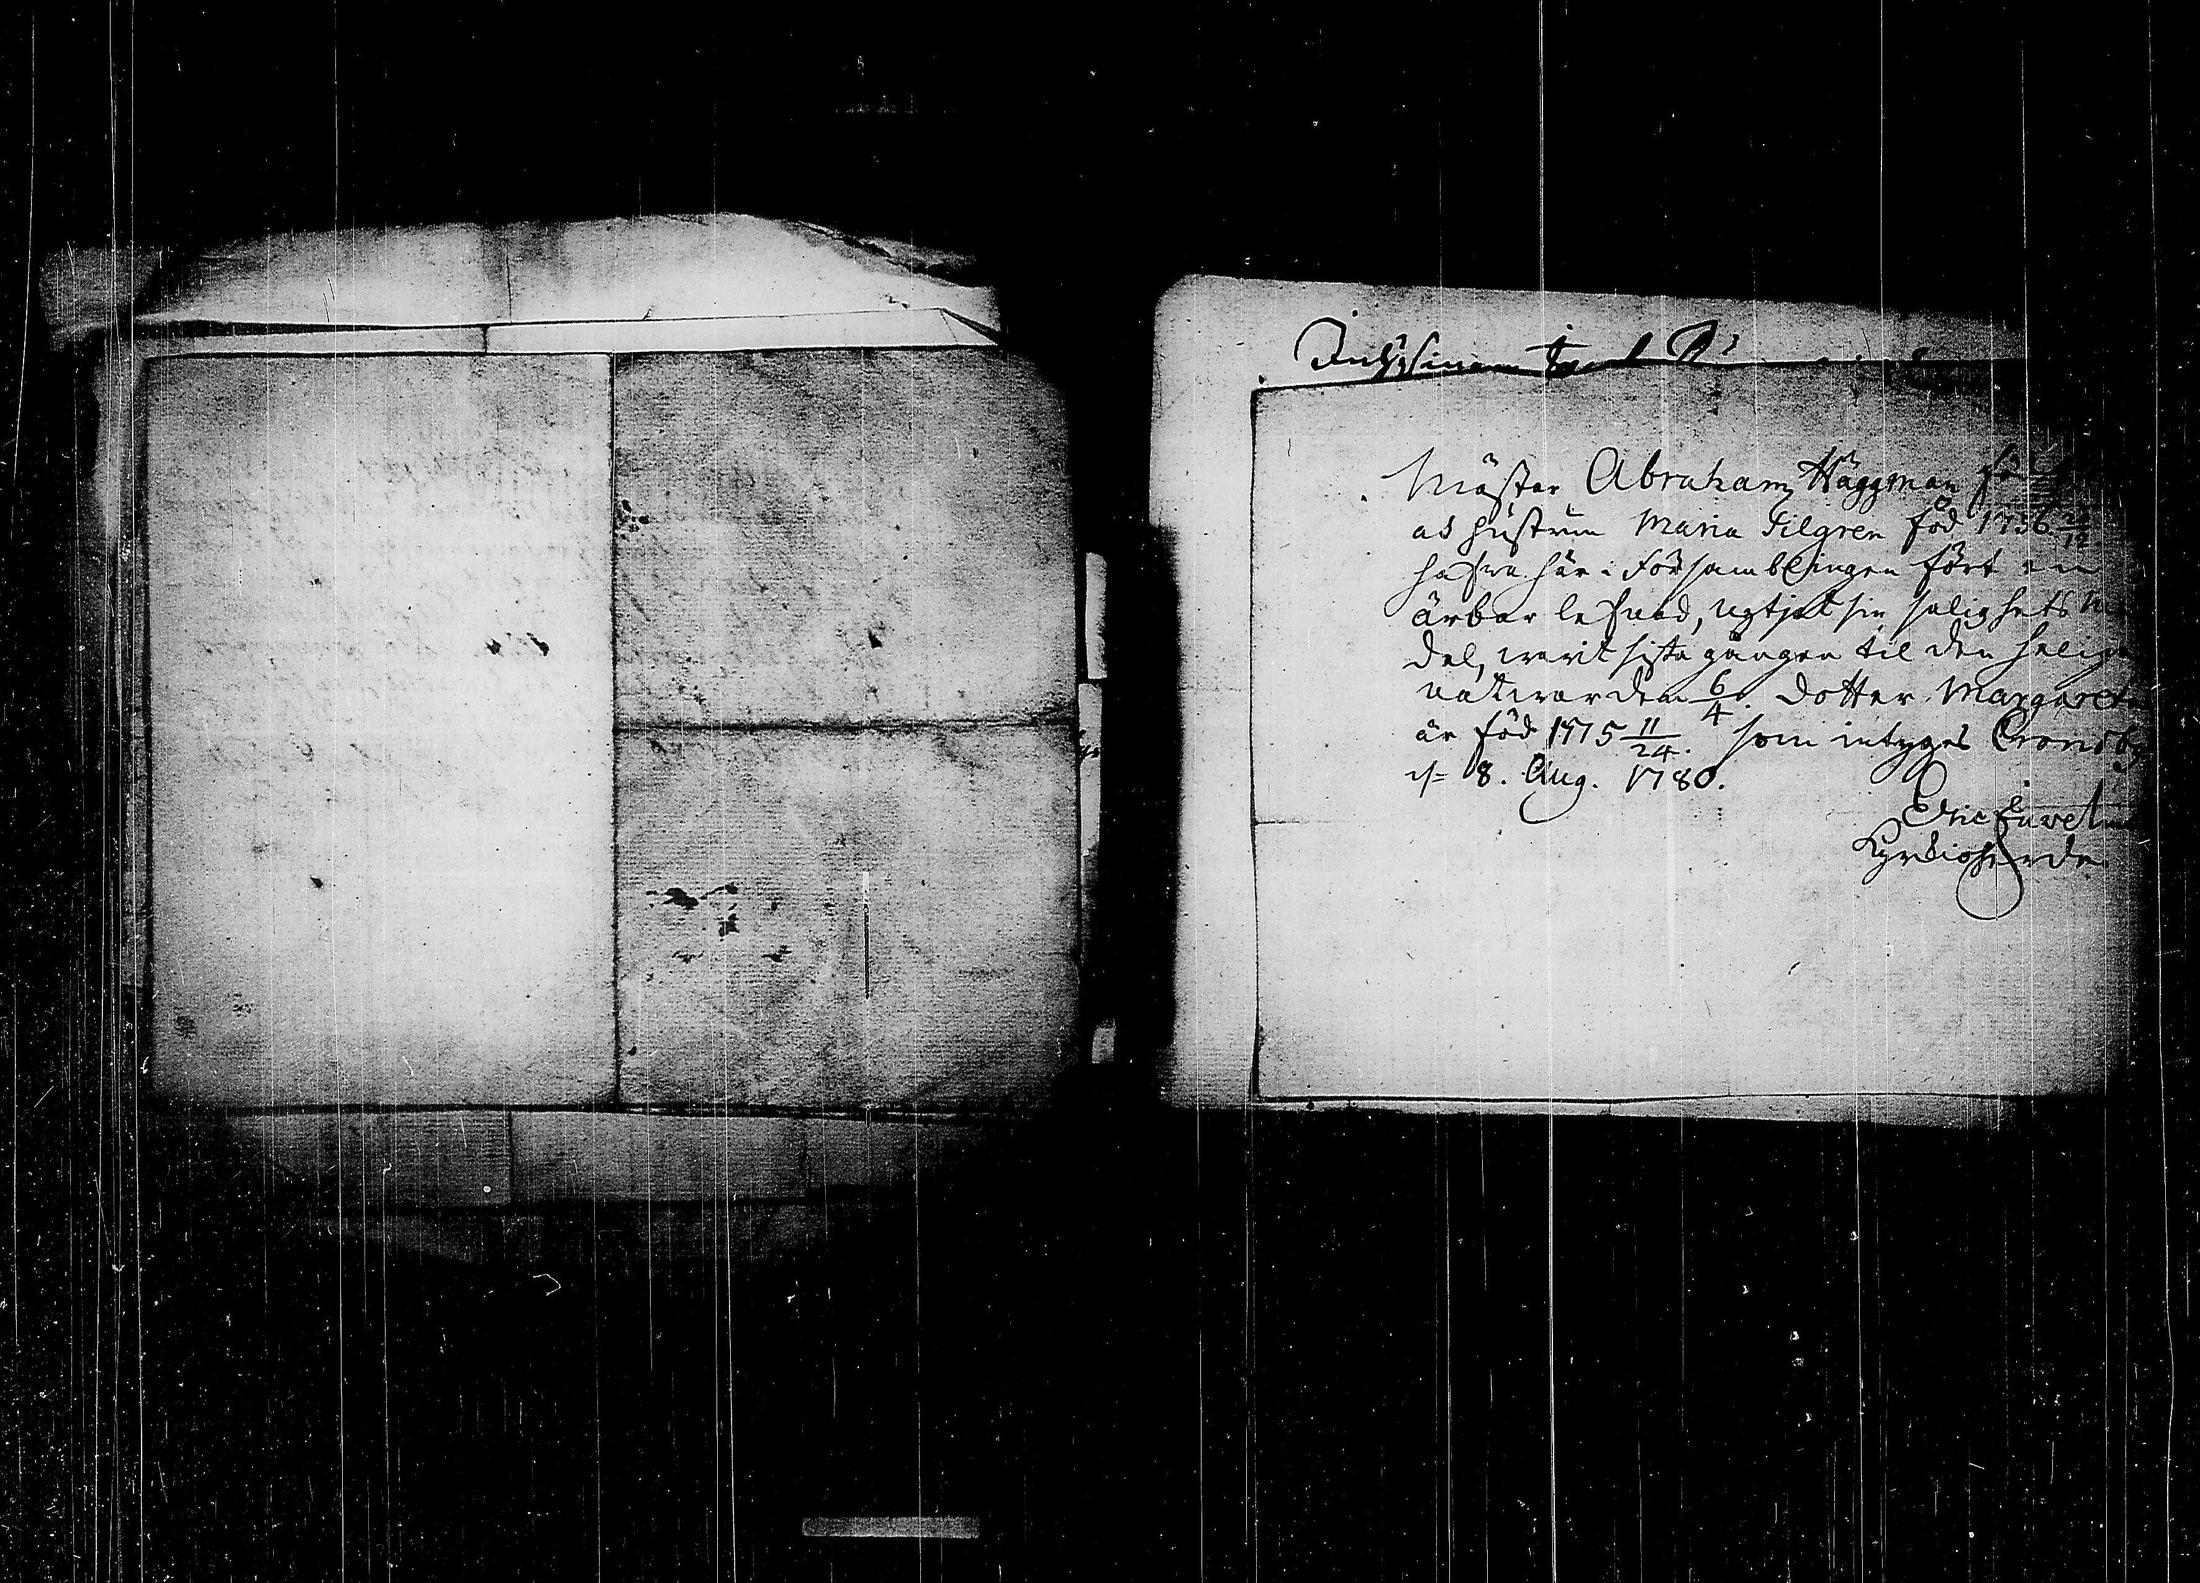 Mäster Abraham Häggman
as hustrun Maria Silgren född 1736 22/12
hafva här i Församblingen fört en
ärbar lefnad, nytjat sin salighets
del, warit sista gången til den helige
natwarden 6/4. Dotter Margareta
är född 1775 11/24. som intyges Cronoby
d. 8. Aug. 1780.
Eric
Kyrkioherde